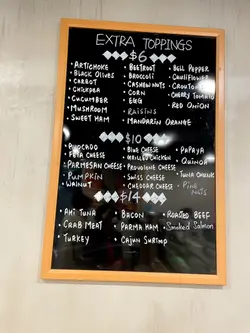 EXTRA TOPPINGS
$6
- ARTICHOKE - BEETROOT - BELL PEPPER
- BLACK OLIVES - BROCCOLI - CAULIFLOWER
- CARROT - CASHEW NUTS - CROUTON
- CHICKPEA - CORN - CHERRY TOMATO
- CUCUMBER - EGG - RED ONION
- MUSHROOM - RAISINS
- SWEET HAM - MANDARIN ORANGE
$10
- AVOCADO - BLUE CHEESE - PAPAYA
- FETA CHEESE - GRILLED CHICKEN - QUINOA
- PARMESAN CHEESE - PROVOLONE CHEESE - TUNA CHUNKS
- PUMPKIN - SWISS CHEESE - PINE NUTS
- WALNUT - CHEDDAR CHEESE
$14
- AHI TUNA - BACON - ROASTED BEEF
- CRAB MEAT - PARMA HAM - Smoked Salmon
- TURKEY - CAJUN SHRIMP